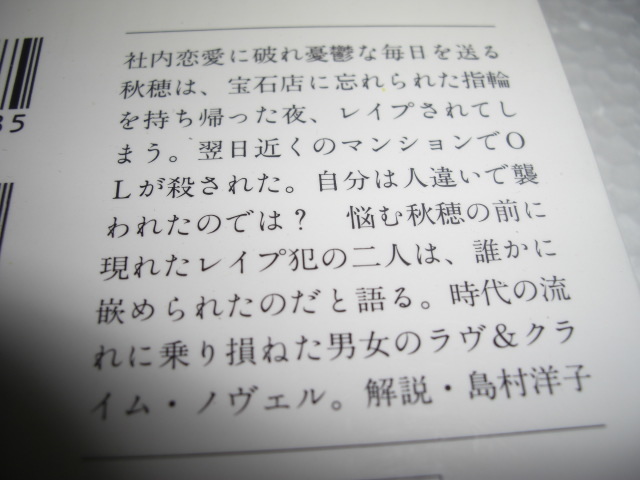 社内恋愛に破れ憂鬱な毎日を送る
秋穂は、宝石店に忘れられた指輪
を持ち帰った夜、レイプされてし
まう。翌日近くのマンションでO
Lが殺された。自分は人違いで襲
われたのでは？　悩む秋穂の前に
現れたレイプ犯の二人は、誰かに
嵌められたのだと語る。時代の流
れに乗り損ねた男女のラヴ＆クラ
イム・ノヴェル。解説・島村洋子
85